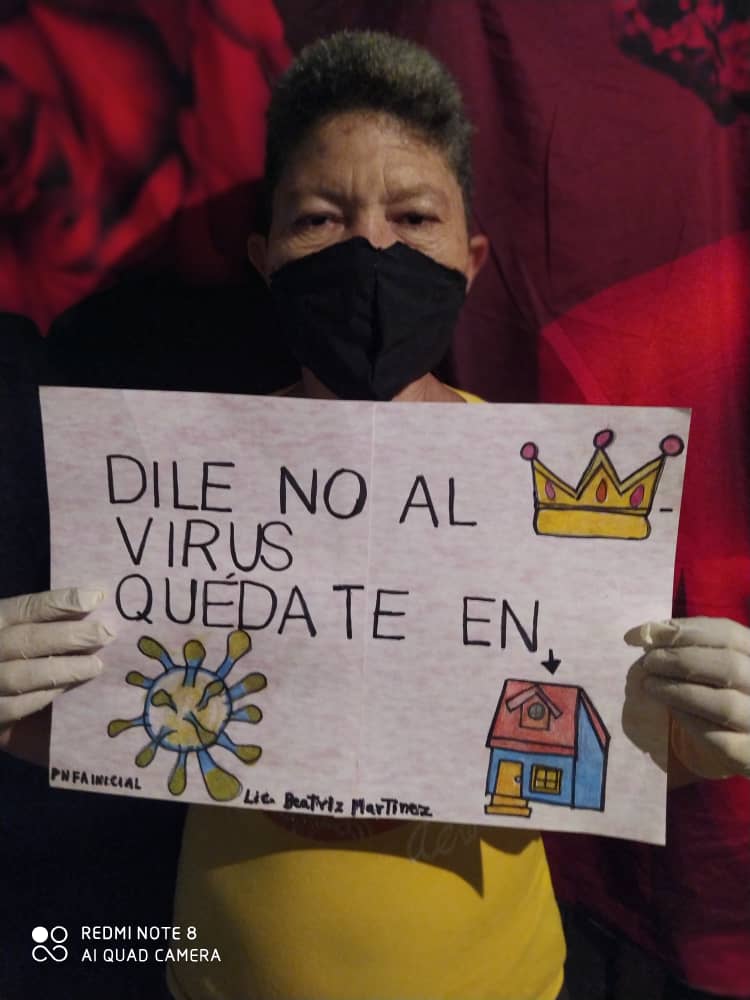 DILE NO AL
VIRUS
QUÉDATE EN
PNFA INICIAL
Lic. Beatriz Martinez
REDMI NOTE 8
AI QUAD CAMERA